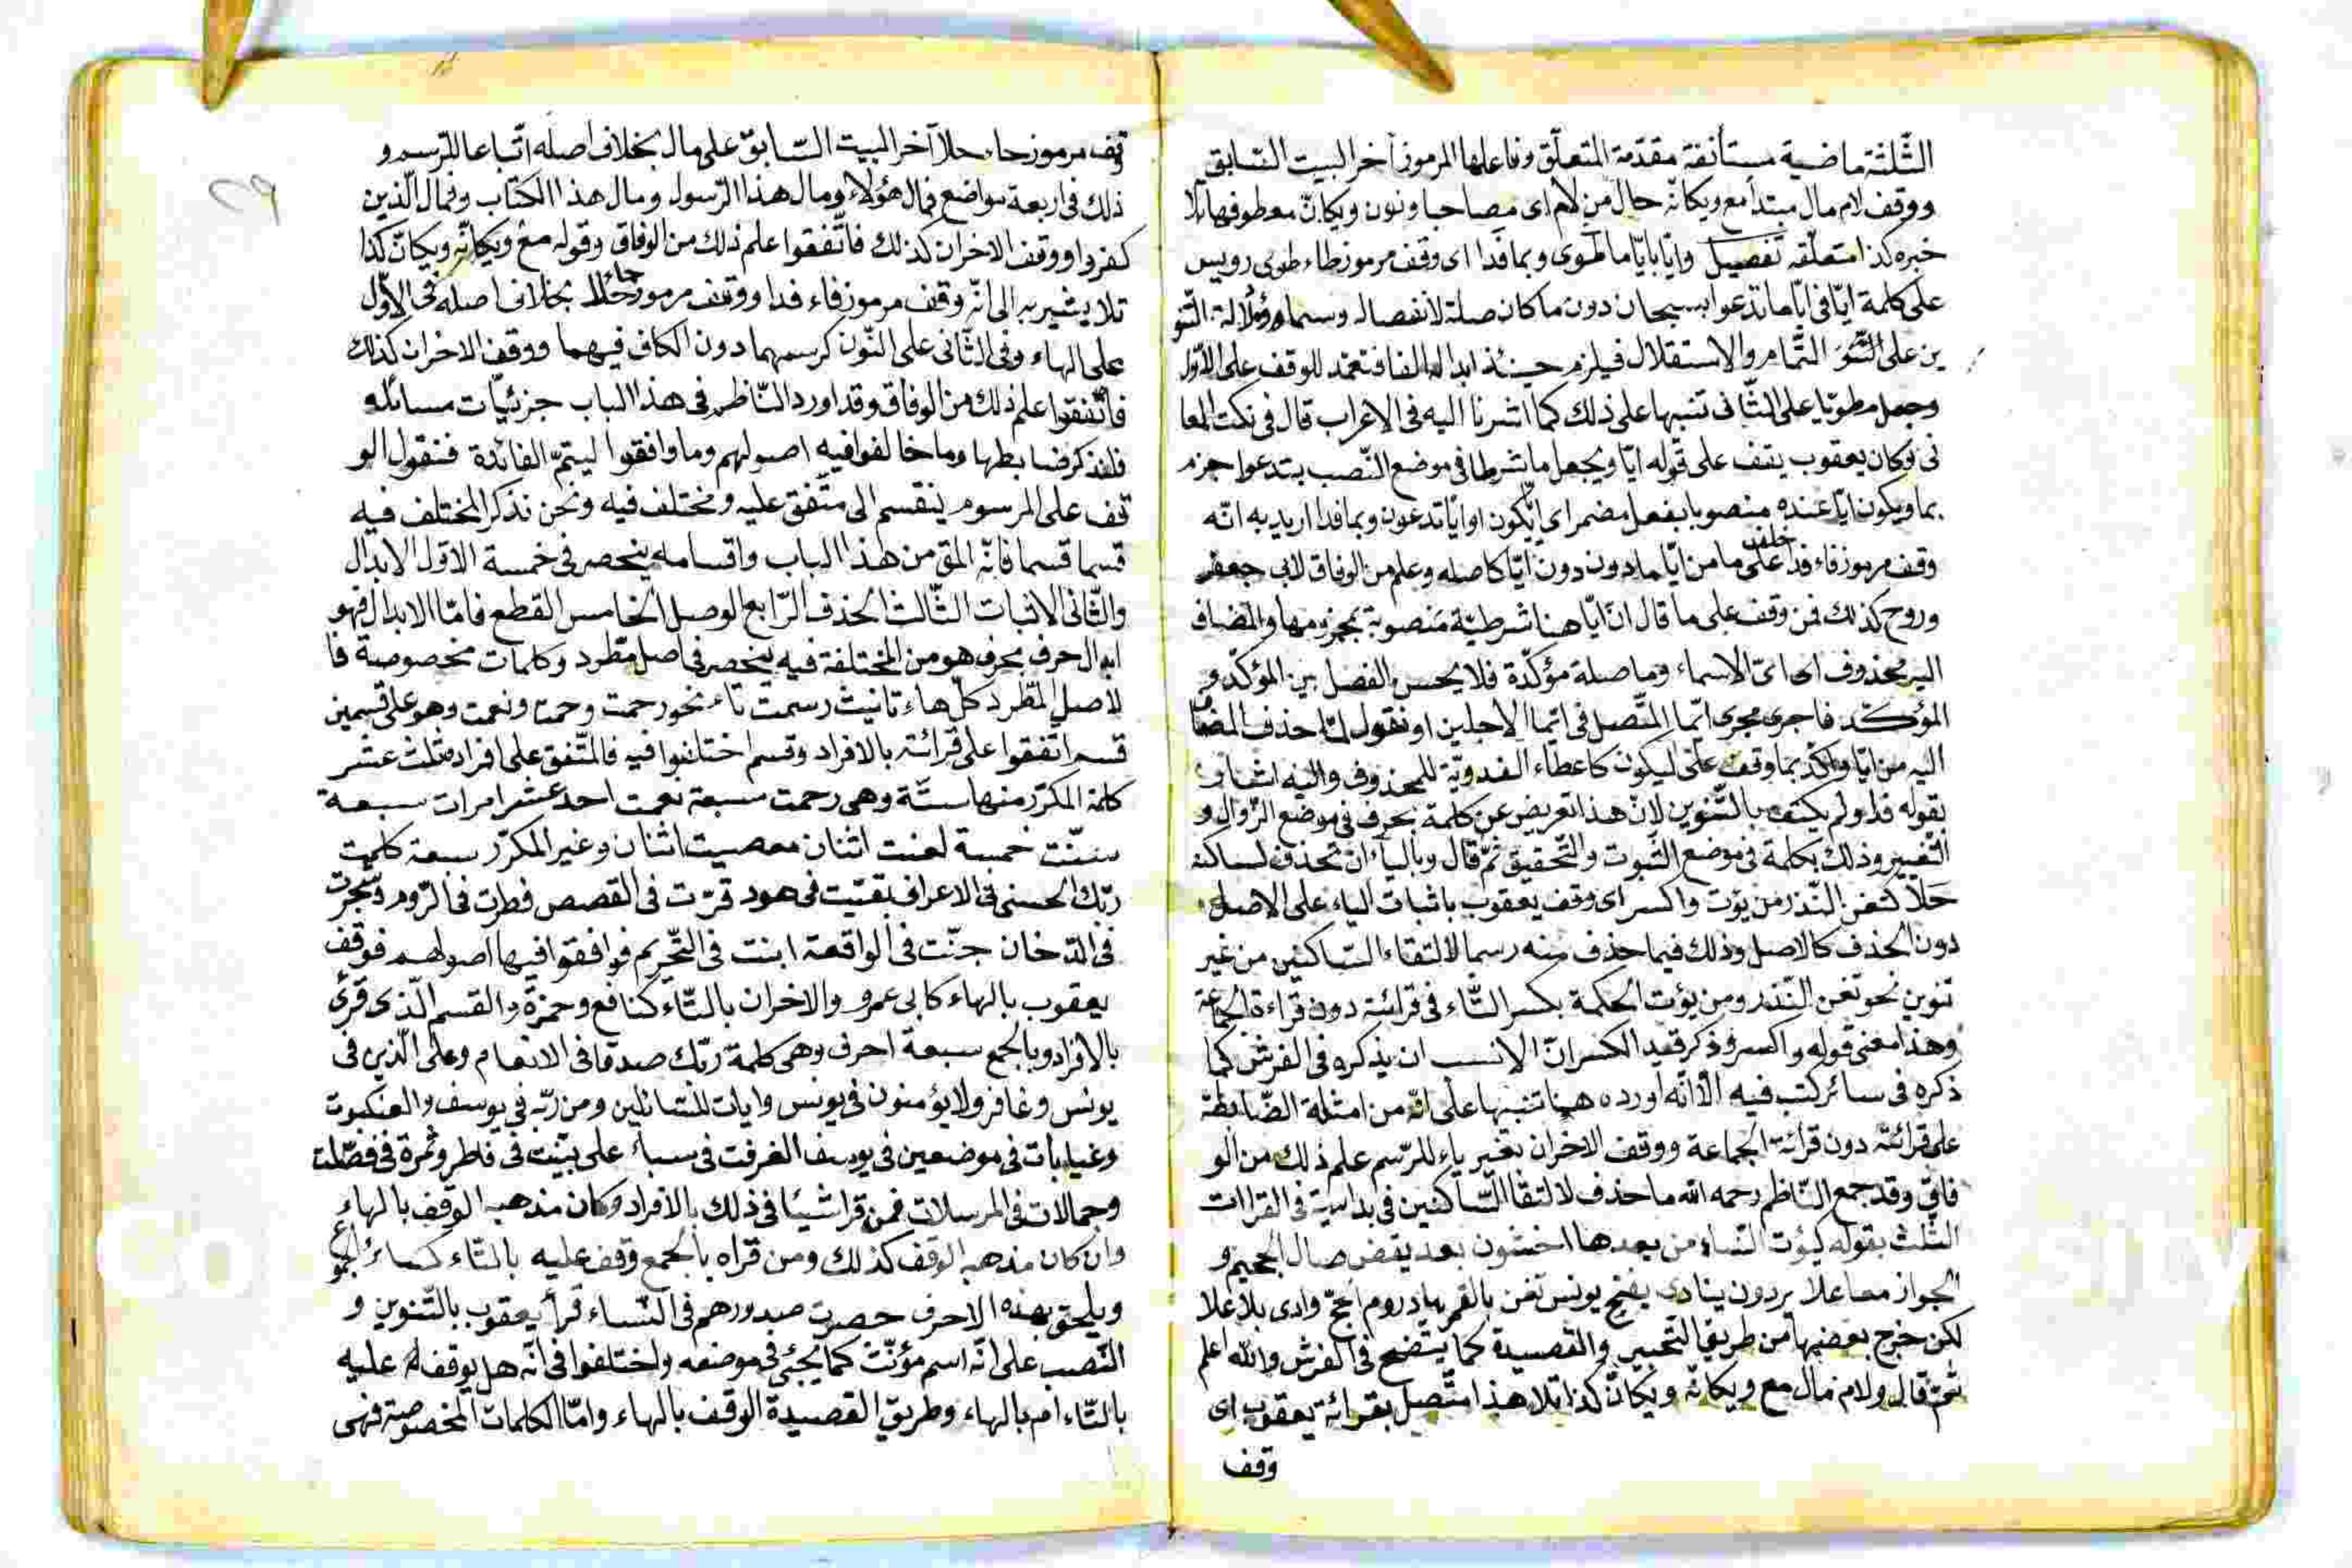 الثلثة ماضية مستأنفة مقدمة المتعلق وفاعلها المرموز آخر البيت السابق
ووقف لام مال مبتدأ مع ويكأنه حال من لام اى مصاحبا ونون ويكأن معطوفها تلا
خبره كذا متعلقه تفصيل وايا بايا ما طوى وبما فدا اى وقف مرموز طاء طوى رويس
على كلمة ايا فى ايا ما تدعوا بسبحان دون ما كان صلة لانفصاله وسما ودلالة التنو
ين على التمام والاستقلال فيلزم حينئذ ابداله الفا فتعمد للوقف على الاول
وجعل مطويا على الثانى تنبيها على ذلك كما اشرنا اليه فى الاعراب قال فى نكت المعا
نى وكان يعقوب يقف على قوله ايا ويجعل ما شرطا فى موضع النصب بتدعوا جزم
بما ويكون ايا عنده منصوبا بفعل مضمر اى يكون او ايا تدعون وبما فدا اريد به انه
وقف مرموز فاء فدا خلف على ما من ايا ما دون دون ايا كاصله وعلم من الوفاق لابى جعفر
وروح كذلك فمن وقف على ما قال ان ايا هنا شرطية منصوبة بمجزومها والمضاف
اليه محذوف اى اى الاسماء وما صلة مؤكدة فلا يحسن الفصل بين المؤكد و
المؤكد فاجرى مجرى ايما المتصل فى ايما الاجلين او نقول لما حذف المضاف
اليه من ايا واكد بما وقف على ليكون كاعطاء الفدوية للمحذوف واليه اشار
بقوله فدا ولم يكتف بالتنوين لان هذا تعويض عن كلمة بحرف فى موضع الزوال و
التغيير وذلك بكلمة فى موضع الثبوت والتحقيق ثم قال وبالياء ان تحذف لساكنه
حلا كتغن النذر من يؤت واكسر اى وقف يعقوب باثبات الياء على الاصل
دون الحذف كالاصل وذلك فيما حذف منه رسما لالتقاء الساكنين من غير
تنوين نحو تغن النذر ومن يؤت الحكمة بكسر التاء فى قرائته دون قراءة الجماعة
وهذا معنى قوله واكسر وذكر قيد الكسر ان الانسب ان يذكره فى الفرش كما
ذكره فى سائر كتب فيه الا انه اورده هنا تنبيها على انه من امثلة الضابطة
على قرائته دون قرائة الجماعة ووقف الاخران بغير ياء للرسم علم ذلك من الو
فاق وقد جمع الناظم رحمه الله ما حذف لالتقا الساكنين فى بدايته فى القراات
الثلث بقوله كيؤت النساء من بعدها اخشون بعد يقض صال الجحيم و
الجواز معا علا يردون ينادى بفتح يونس تغن بالقمر بهاد روم الحج وادى بلا علا
لكن خرج بعضها من طريق التحبير والقصيدة كما يتضح فى الفرش والله اعلم
ثم قال ولام مال مع ويكأنه ويكأن كذا تلا هذا متصل بقرائة يعقوب اى
وقف
وقف مرموز حاء حلا آخر البيت السابق على مال بخلاف اصله اتباعا للرسم و
ذلك فى اربعة مواضع فمال هؤلاء ومال هذا الرسول ومال هذا الكتاب وفمال الذين
كفروا ووقف الاخران كذلك فاتفقوا علم ذلك من الوفاق وقوله مع ويكأنه ويكأن كذا
تلا يشير به الى انه وقف مرموز فاء فدا ووقف مرموز حاء حلا بخلاف اصله فى الاول
على الهاء وفى الثانى على النون كرسمهما دون الكاف فيهما ووقف الاخران كذلك
فاتفقوا علم ذلك من الوفاق وقد اورد الناظم فى هذا الباب جزئيات مسائله
فلنذكر ضابطها وما خالفوا فيه اصولهم وما وافقوا ليتم الفائدة فنقول الو
قف على المرسوم ينقسم الى متفق عليه ومختلف فيه ونحن نذكر المختلف فيه
قسما قسما فانه المق من هذا الباب واقسامه ينحصر فى خمسة الاول الابدال
والثانى الاثبات الثالث الحذف الرابع الوصل الخامس القطع فاما الابدال فهو
ابدال حرف بحرف هو من المختلفة فيه ينحصر فى اصل مطرد وكلمات مخصوصة فا
لاصل المطرد كل هاء تانيث رسمت تاء نحو رحمت ونعمت وهو على قسمين
قسم اتفقوا على قرائته بالافراد وقسم اختلفوا فيه فالمتفق على افراده ثلث عشر
كلمة المكرر منها ستة وهى رحمت سبعة نعمت احد عشر امرات سبعة
سنت خمسة لعنت اثنان معصيت اثنان وغير المكرر سبعة كلمت
ربك الحسنى فى الاعراف بقيت فى هود قرت فى القصص فطرت فى الروم وشجرت
فى الدخان جنت فى الواقعة ابنت فى التحريم فوافقوا فيها اصولهم فوقف
يعقوب بالهاء كابى عمرو والاخران بالتاء كنافع وحمزة والقسم الذى قرئ
بالافراد وبالجمع سبعة احرف وهى كلمة ربك صدقا فى الانعام وعلى الذين فى
يونس وغافر ولا يؤمنون فى يونس وايات للسائلين ومن ربه فى يوسف والعنكبوت
وغيابات فى موضعين فى يوسف الغرفت فى سبأ على بينت فى فاطر وثمرة فى فصلت
وجمالات فى المرسلات فمن قرا شيئا فى ذلك بالافراد وكان مذهبه الوقف بالهاء
وان كان مذهبه الوقف كذلك ومن قراه بالجمع وقف عليه بالتاء كسائر الجموع
ويلحق بهذه الاحرف حصرت صدورهم فى النساء قرأ يعقوب بالتنوين و
النصب على انه اسم مؤنث كما يجئ فى موضعه واختلفوا فى انه هل يوقف له عليه
بالتاء ام بالهاء وطريق القصيدة الوقف بالهاء واما الكلمات المخصوصة فهى